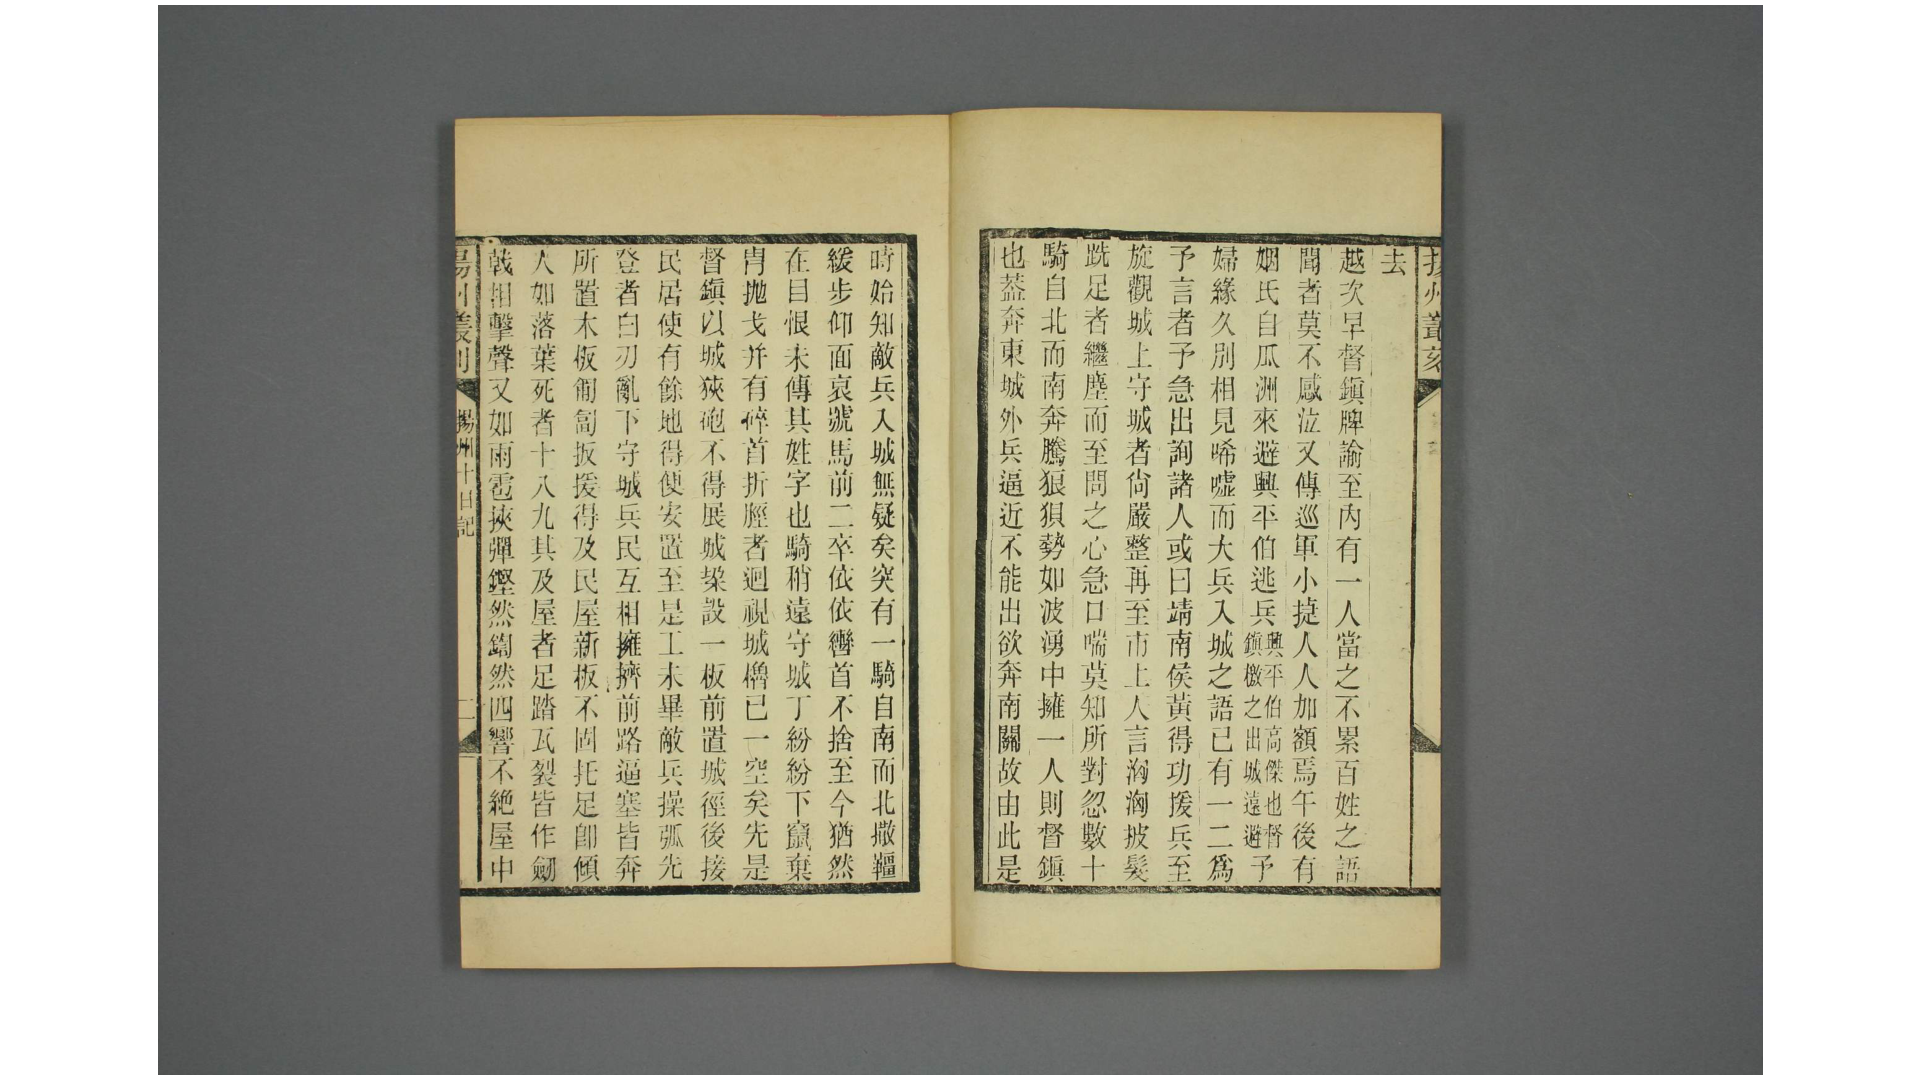 去
越次早督鎮牌諭至內有一人當之不累百姓之語
聞者莫不感泣又傳巡軍小捷人人加額焉午後有
姻氏自瓜洲來避興平伯逃兵興平伯高傑也督鎮檄之出城遠避予
婦緣久別相見唏噓而大兵入城之語已有一二爲
予言者予急出詢諸人或曰靖南侯黃得功援兵至
旋觀城上守城者尙嚴整再至市上人言洶洶披髮
跣足者繼塵而至問之心急口喘莫知所對忽數十
騎自北而南奔騰狼狽勢如波湧中擁一人則督鎮
也葢奔東城外兵逼近不能出欲奔南關故由此是
時始知敵兵入城無疑矣突有一騎自南而北撒韁
緩步仰面哀號馬前二卒依依轡首不捨至今猶然
在目恨未傳其姓字也騎稍遠守城丁紛紛下竄棄
胄抛戈并有碎首折脛者迴視城櫓已一空矣先是
督鎮以城狹砲不得展城垜設一板前置城徑後接
民居使有餘地得便安置至是工未畢敵兵操弧先
登者白刃亂下守城兵民互相擁擠前路逼塞皆奔
所置木板匍匐扳援得及民屋新板不固托足卽傾
人如落葉死者十八九其及屋者足踏瓦裂皆作劒
戟相擊聲又如雨雹挾彈鏗然鍧然四響不絶屋中
揚州十日記
二